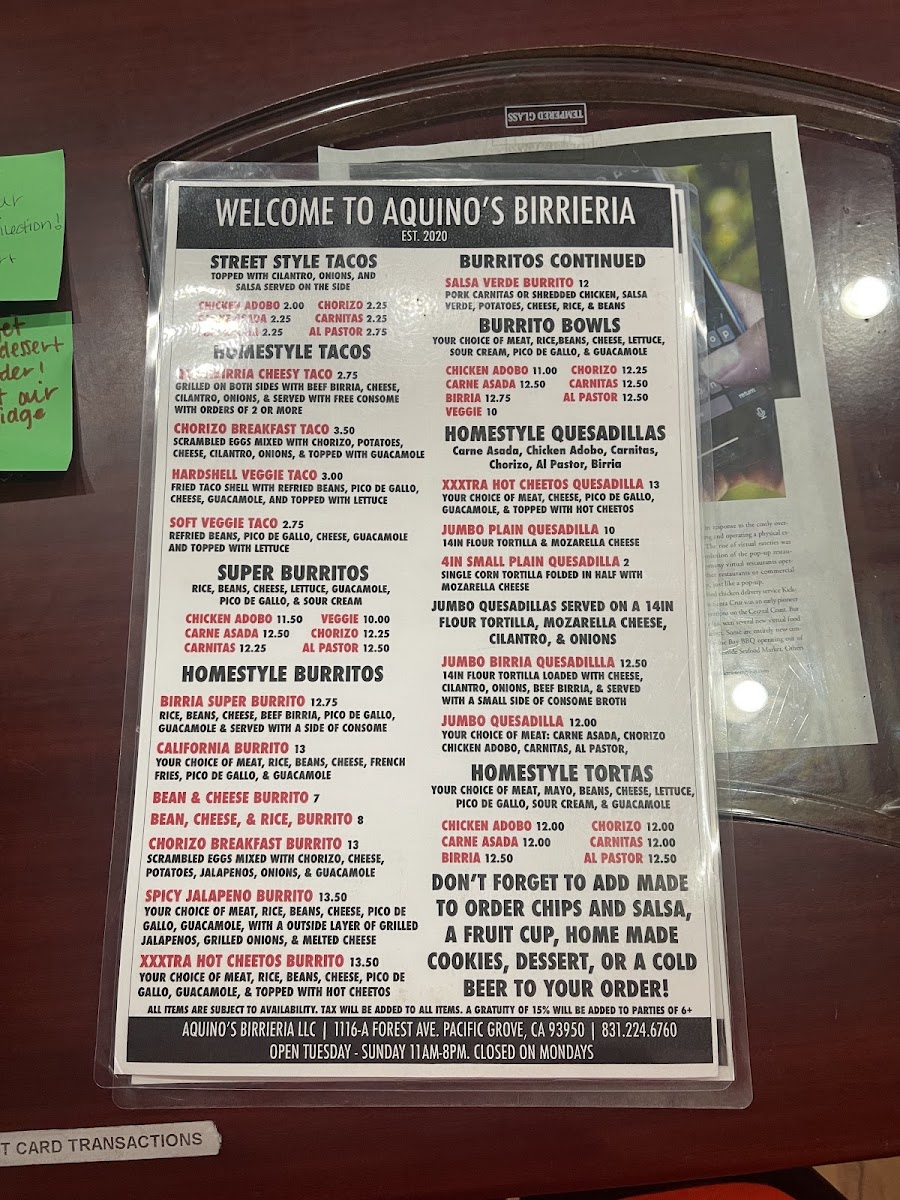 TEMPERED GLASS
WELCOME TO AQUINO'S BIRRIERIA
EST. 2020
STREET STYLE TACOS
TOPPED WITH CILANTRO, ONIONS, AND
SALSA SERVED ON THE SIDE
CHICKEN ADOBO 2.00 CHORIZO 2.25
ASADA 2.25 CARNITAS 2.25
2.25 AL PASTOR 2.75
HOMESTYLE TACOS
BIRRIA CHEESY TACO 2.75
GRILLED ON BOTH SIDES WITH BEEF BIRRIA, CHEESE,
CILANTRO, ONIONS, & SERVED WITH FREE CONSOME
WITH ORDERS OF 2 OR MORE
CHORIZO BREAKFAST TACO 3.50
SCRAMBLED EGGS MIXED WITH CHORIZO, POTATOES,
CHEESE, CILANTRO, ONIONS, & TOPPED WITH GUACAMOLE
HARDSHELL VEGGIE TACO 3.00
FRIED TACO SHELL WITH REFRIED BEANS, PICO DE GALLO,
CHEESE, GUACAMOLE, AND TOPPED WITH LETTUCE
SOFT VEGGIE TACO 2.75
REFRIED BEANS, PICO DE GALLO, CHEESE, GUACAMOLE
AND TOPPED WITH LETTUCE
SUPER BURRITOS
RICE, BEANS, CHEESE, LETTUCE, GUACAMOLE,
PICO DE GALLO, & SOUR CREAM
CHICKEN ADOBO 11.50 VEGGIE 10.00
CARNE ASADA 12.50 CHORIZO 12.25
CARNITAS 12.25 AL PASTOR 12.50
HOMESTYLE BURRITOS
BIRRIA SUPER BURRITO 12.75
RICE, BEANS, CHEESE, BEEF BIRRIA, PICO DE GALLO,
GUACAMOLE & SERVED WITH A SIDE OF CONSOME
CALIFORNIA BURRITO 13
YOUR CHOICE OF MEAT, RICE, BEANS, CHEESE, FRENCH
FRIES, PICO DE GALLO, & GUACAMOLE
BEAN & CHEESE BURRITO 7
BEAN, CHEESE, & RICE, BURRITO 8
CHORIZO BREAKFAST BURRITO 13
SCRAMBLED EGGS MIXED WITH CHORIZO, CHEESE,
POTATOES, JALAPENOS, ONIONS, & GUACAMOLE
SPICY JALAPENO BURRITO 13.50
YOUR CHOICE OF MEAT, RICE, BEANS, CHEESE, PICO DE
GALLO, GUACAMOLE, WITH A OUTSIDE LAYER OF GRILLED
JALAPENOS, GRILLED ONIONS, & MELTED CHEESE
XXXTRA HOT CHEETOS BURRITO 13.50
YOUR CHOICE OF MEAT, RICE, BEANS, CHEESE, PICO DE
GALLO, GUACAMOLE, & TOPPED WITH HOT CHEETOS
BURRITOS CONTINUED
SALSA VERDE BURRITO 12
PORK CARNITAS OR SHREDDED CHICKEN, SALSA
VERDE, POTATOES, CHEESE, RICE, & BEANS
BURRITO BOWLS
YOUR CHOICE OF MEAT, RICE,BEANS, CHEESE, LETTUCE,
SOUR CREAM, PICO DE GALLO, & GUACAMOLE
CHICKEN ADOBO 11.00 CHORIZO 12.25
CARNE ASADA 12.50 CARNITAS 12.50
BIRRIA 12.75 AL PASTOR 12.50
VEGGIE 10
HOMESTYLE QUESADILLAS
Carne Asada, Chicken Adobo, Carnitas,
Chorizo, Al Pastor, Birria
XXXTRA HOT CHEETOS QUESADILLA 13
YOUR CHOICE OF MEAT, CHEESE, PICO DE GALLO,
GUACAMOLE, & TOPPED WITH HOT CHEETOS
JUMBO PLAIN QUESADILLA 10
14IN FLOUR TORTILLA & MOZARELLA CHEESE
4IN SMALL PLAIN QUESADILLA 2
SINGLE CORN TORTILLA FOLDED IN HALF WITH
MOZARELLA CHEESE
JUMBO QUESADILLAS SERVED ON A 14IN
FLOUR TORTILLA, MOZARELLA CHEESE,
CILANTRO, & ONIONS
JUMBO BIRRIA QUESADILLLA 12.50
14IN FLOUR TORTILLA LOADED WITH CHEESE,
CILANTRO, ONIONS, BEEF BIRRIA, & SERVED
WITH A SMALL SIDE OF CONSOME BROTH
JUMBO QUESADILLA 12.00
YOUR CHOICE OF MEAT: CARNE ASADA, CHORIZO
CHICKEN ADOBO, CARNITAS, AL PASTOR,
HOMESTYLE TORTAS
YOUR CHOICE OF MEAT, MAYO, BEANS, CHEESE, LETTUCE,
PICO DE GALLO, SOUR CREAM, & GUACAMOLE
CHICKEN ADOBO 12.00 CHORIZO 12.00
CARNE ASADA 12.00 CARNITAS 12.00
BIRRIA 12.50 AL PASTOR 12.50
DON'T FORGET TO ADD MADE
TO ORDER CHIPS AND SALSA,
A FRUIT CUP, HOME MADE
COOKIES, DESSERT, OR A COLD
BEER TO YOUR ORDER!
ALL ITEMS ARE SUBJECT TO AVAILABILITY. TAX WILL BE ADDED TO ALL ITEMS. A GRATUITY OF 15% WILL BE ADDED TO PARTIES OF 6+
AQUINO'S BIRRIERIA LLC | 1116-A FOREST AVE. PACIFIC GROVE, CA 93950 | 831.224.6760
OPEN TUESDAY - SUNDAY 11AM-8PM. CLOSED ON MONDAYS
dessert
air
T CARD TRANSACTIONS